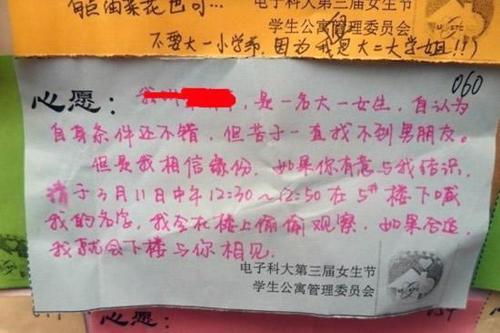 电子科大第三届女生节
学生公寓管理委员会
不要大一小学弟,因为我是大二大学姐!!)
060
心愿: 是一名大一女生,自认为
自身条件还不错,但苦于一直找不到男朋友。
但是我相信缘份,如果你有意与我结识,
请于3月11日中午12:30~12:50在5#楼下喊
我的名字,我会在楼上偷偷观察,如果合适,
我就会下楼与你相见。
电子科大第三届女生节
学生公寓管理委员会